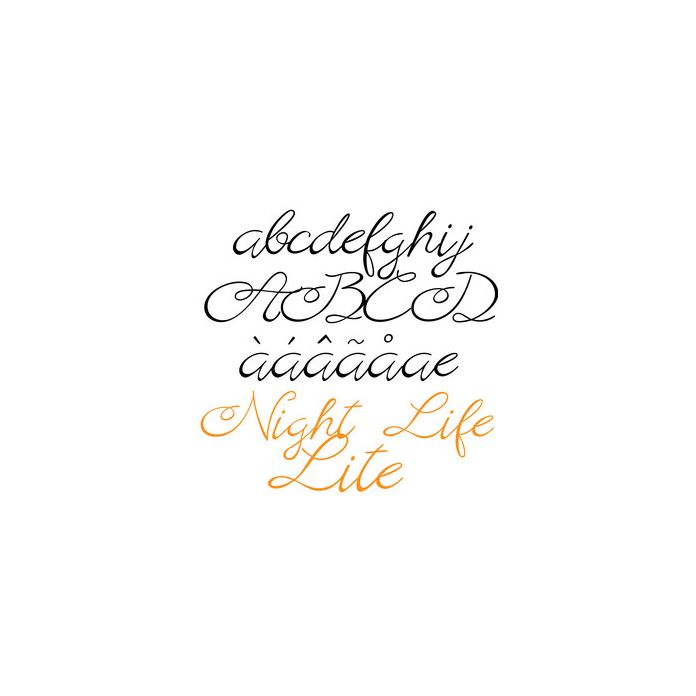 abcdefghij
ABCD
àáâãåae
Night Life
Lite